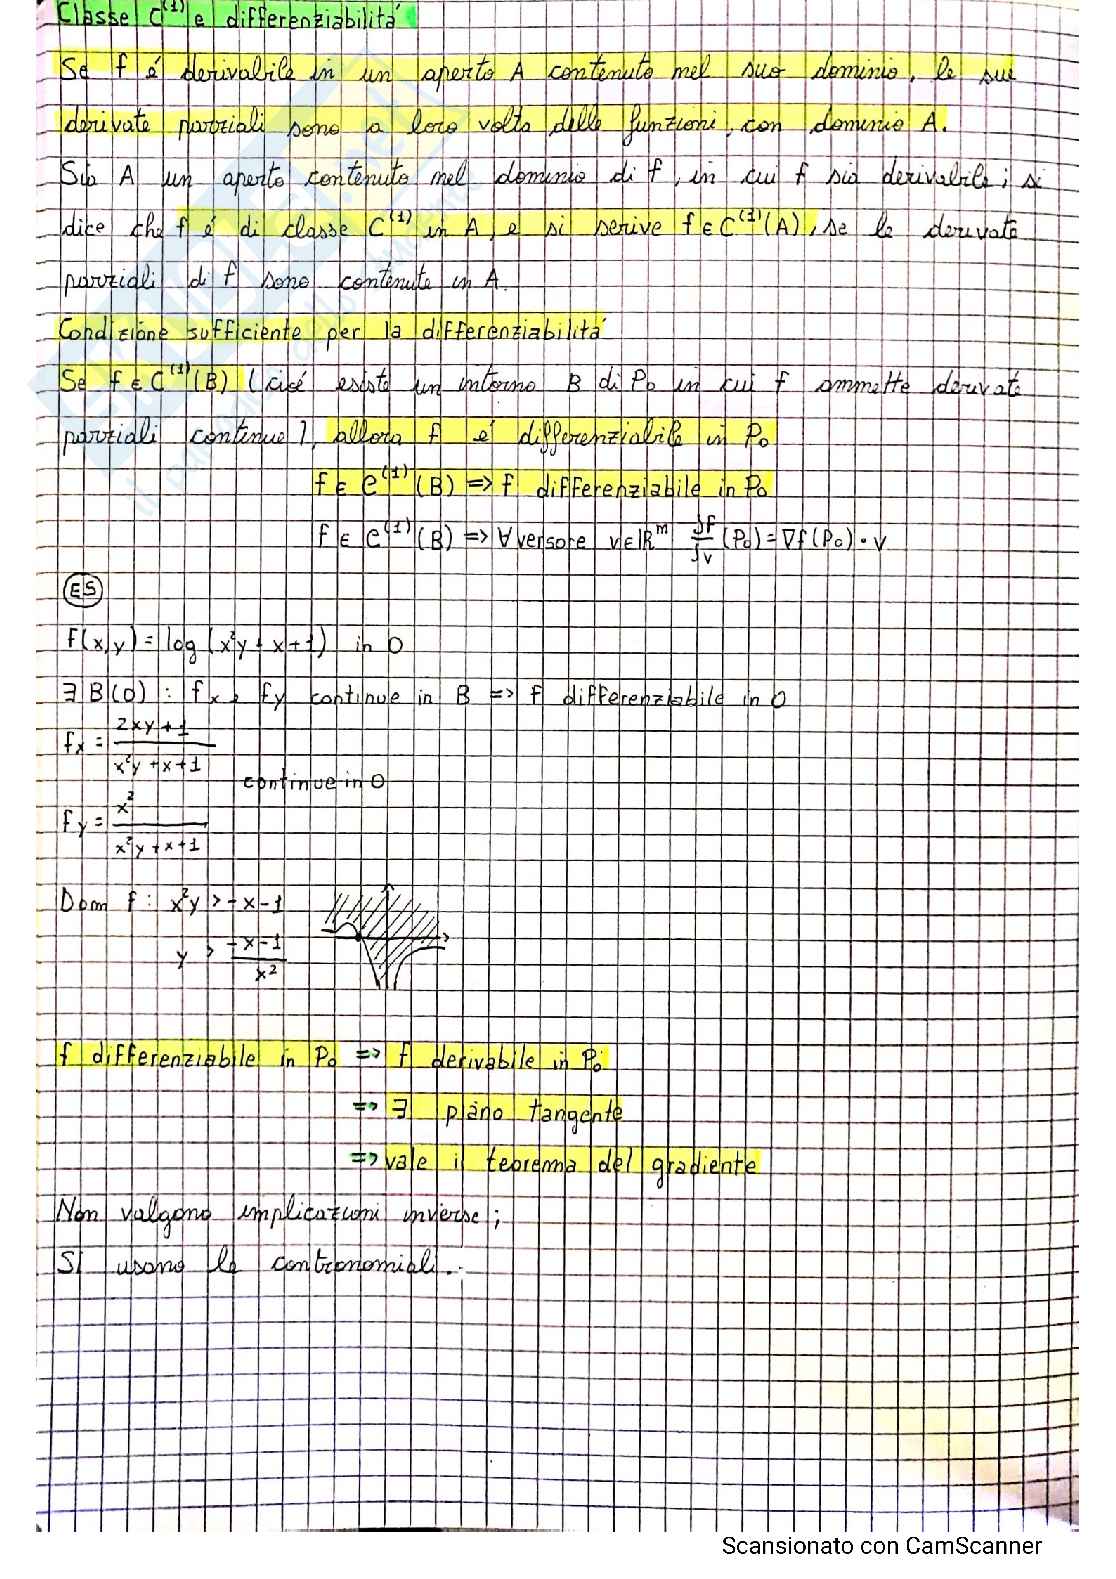 Classe C⁽¹⁾ e differenziabilità
Se f é derivabile in un aperto A contenuto nel suo dominio, le sue
derivate parziali sono a loro volta delle funzioni, con dominio A.
Sia A un aperto contenuto nel dominio di f, in cui f sia derivabile; si
dice che f é di classe C⁽¹⁾ in A, e si scrive f ∈ C⁽¹⁾(A), se le derivate
parziali di f sono contenute in A.
Condizione sufficiente per la differenziabilità
Se f ∈ C⁽¹⁾(B) (cioé esiste un intorno B di P₀ in cui f ammette derivate
parziali continue), allora f é differenziabile in P₀
f ∈ C⁽¹⁾(B) => f differenziabile in P₀
f ∈ C⁽¹⁾(B) => ∀ versore v ∈ ℝᵐ ∂f/∂v (P₀) = ∇f(P₀) · v
ES
f(x,y) = log (x²y + x + 1) in 0
∃ B(0) : fx, fy continue in B => f differenziabile in 0
fx = 2xy + 1 / x²y + x + 1
continue in 0
fy = x² / x²y + x + 1
Dom f : x²y > -x-1
y > -x-1 / x²
f differenziabile in P₀ => f derivabile in P₀
=> ∃ piano tangente
=> vale il teorema del gradiente
Non valgono implicazioni inverse;
Si usano le contronomiali.
Scansionato con CamScanner